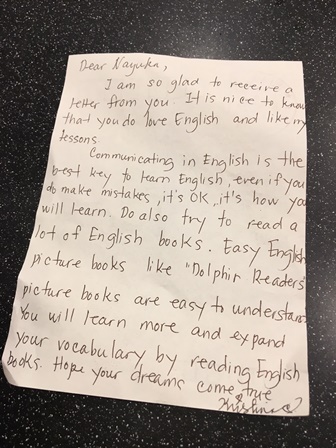 Dear Nayuka,
I am so glad to receive a
letter from you. It is nice to know
that you do love English and like my
lessons.
Communicating in English is the
best key to learn English, even if you
do make mistakes, it's OK, it's how you
will learn. Do also try to read a
lot of English books. Easy English
picture books like "Dolphin Readers"
picture books are easy to understand.
You will learn more and expand
your vocabulary by reading English
books. Hope your dreams come true